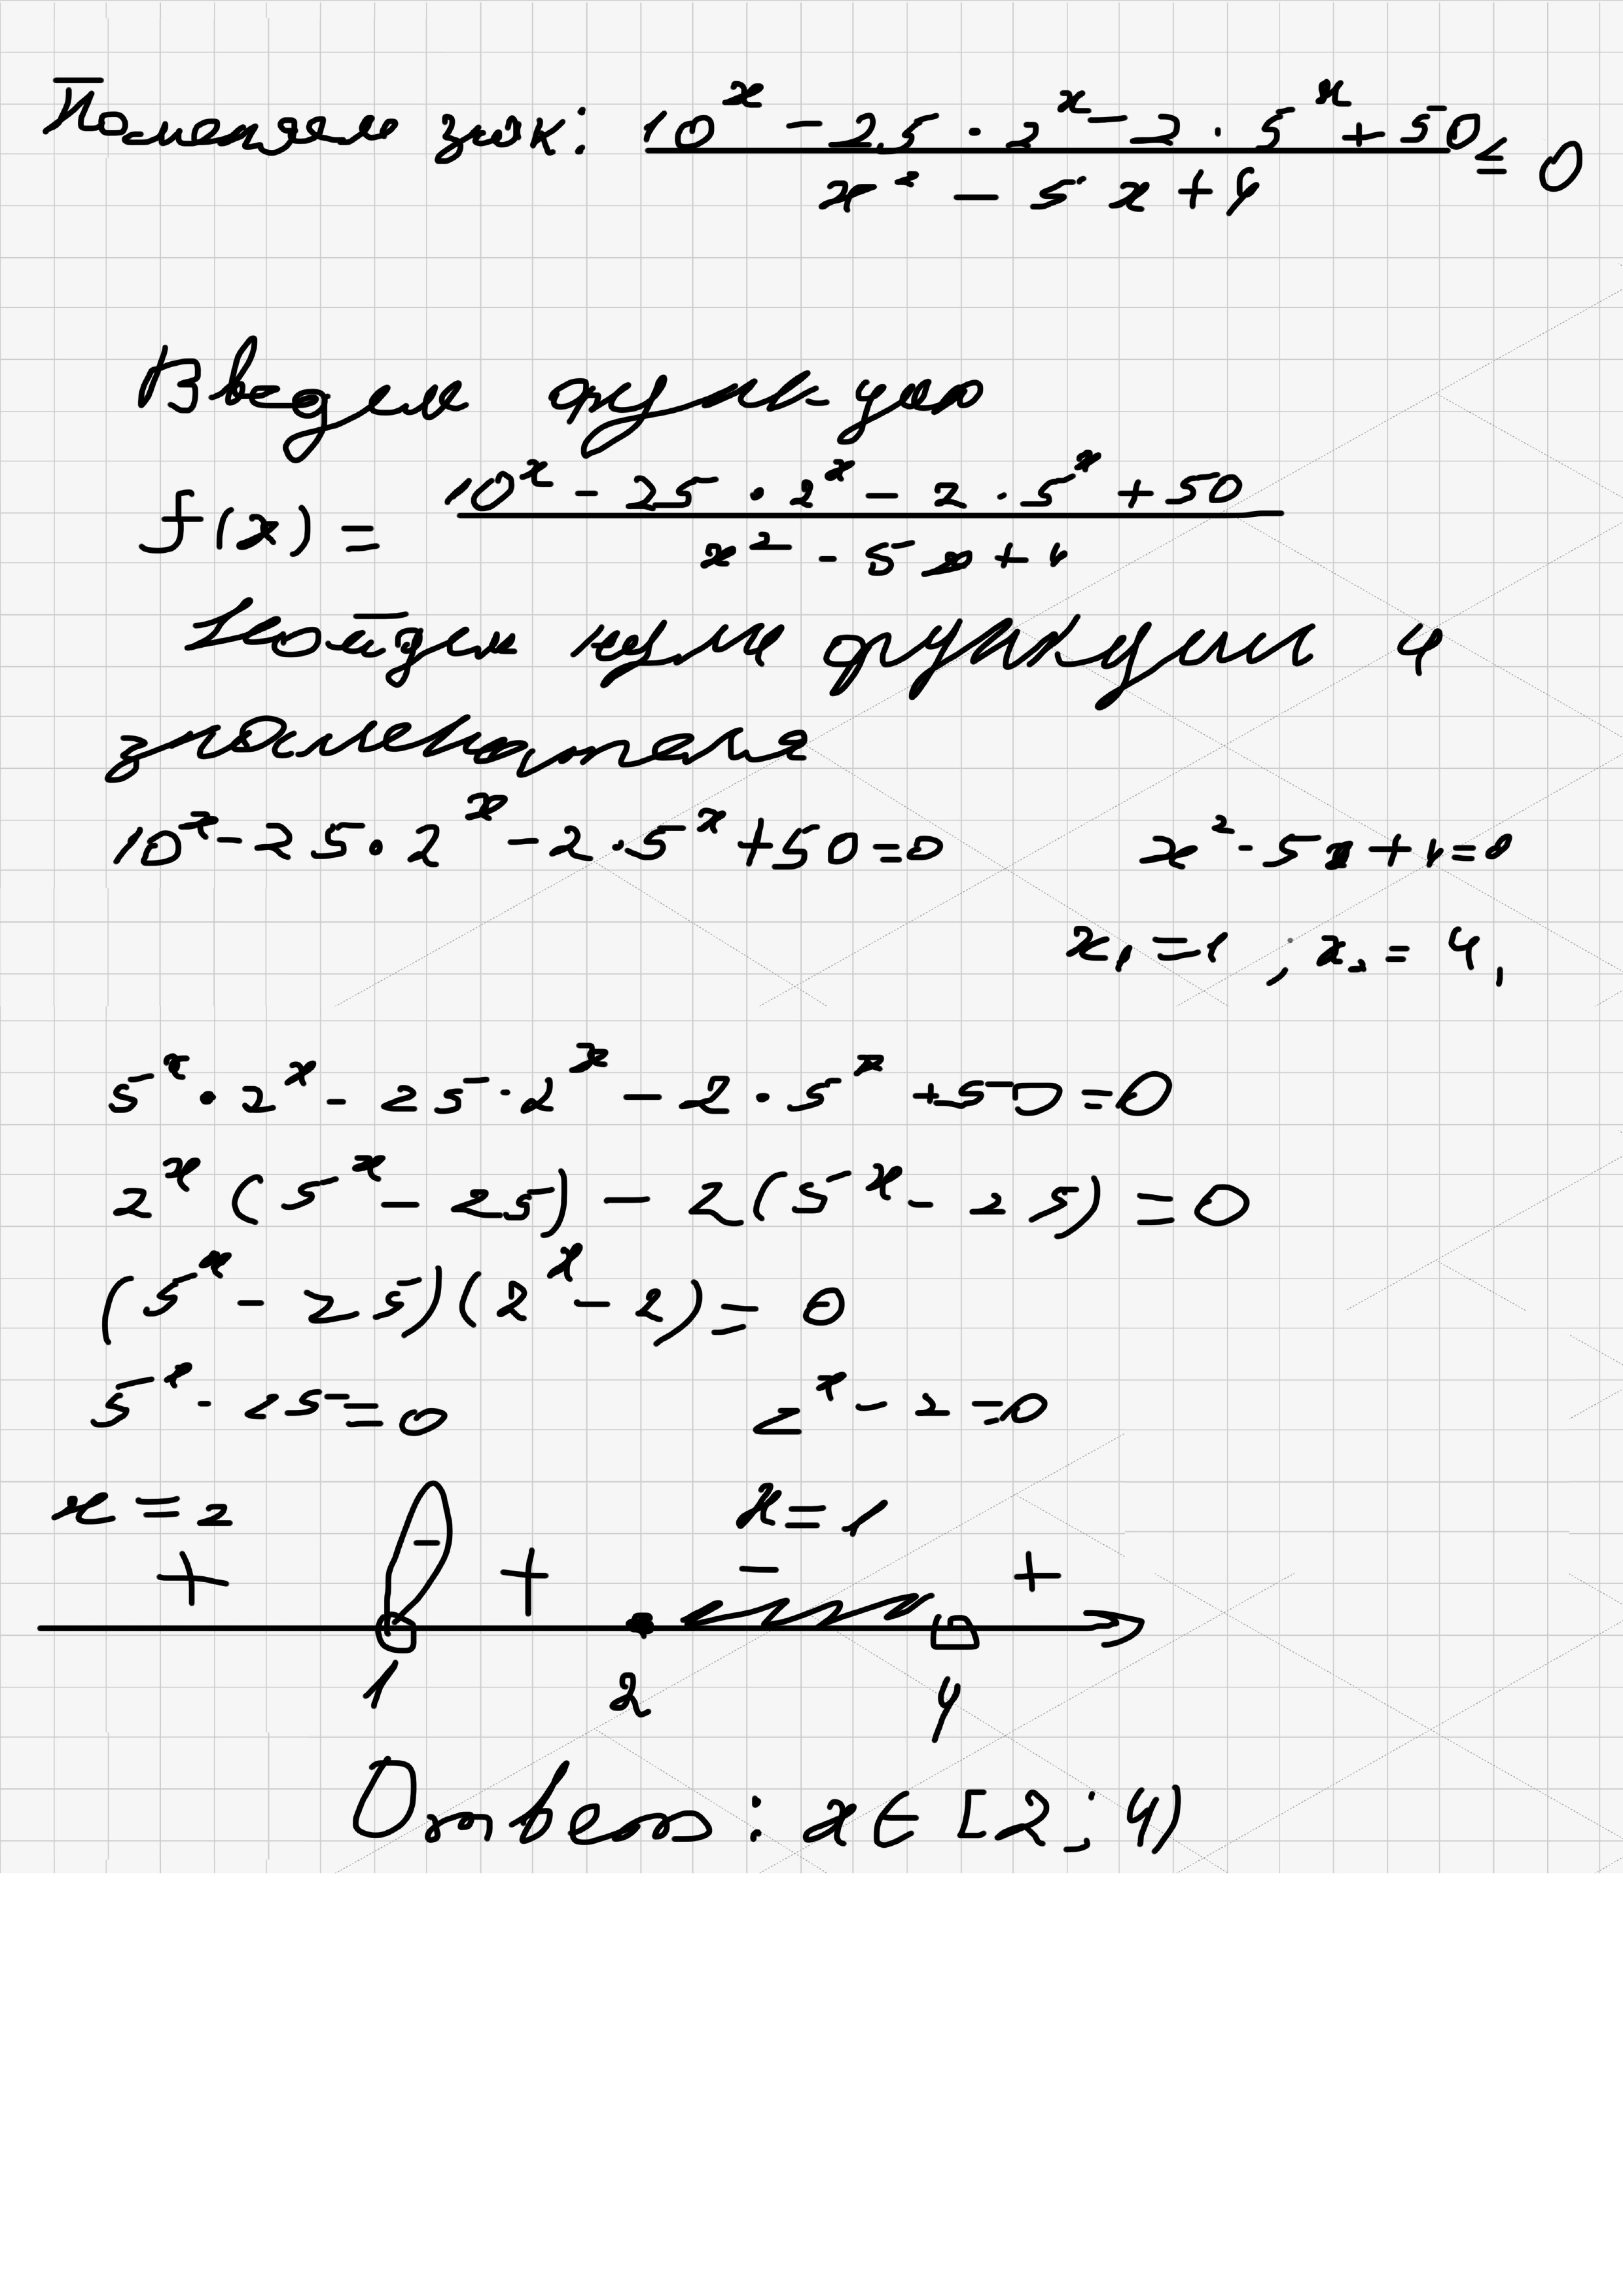 Поменяем знак: (10^x - 25 · 2^x - 2 · 5^x + 50) / (x² - 5x + 4) ≤ 0
Введем функцию
f(x) = (10^x - 25 · 2^x - 2 · 5^x + 50) / (x² - 5x + 4)
Найдем нули функции и
знаменателя
10^x - 25 · 2^x - 2 · 5^x + 50 = 0 x² - 5x + 4 = 0
x₁ = 1 ; x₂ = 4,
5^x · 2^x - 25 · 2^x - 2 · 5^x + 50 = 0
2^x (5^x - 25) - 2(5^x - 25) = 0
(5^x - 25)(2^x - 2) = 0
5^x - 25 = 0 2^x - 2 = 0
x = 2 x = 1
+ - + - +
1 2 4
Ответ: x ∈ [2; 4)